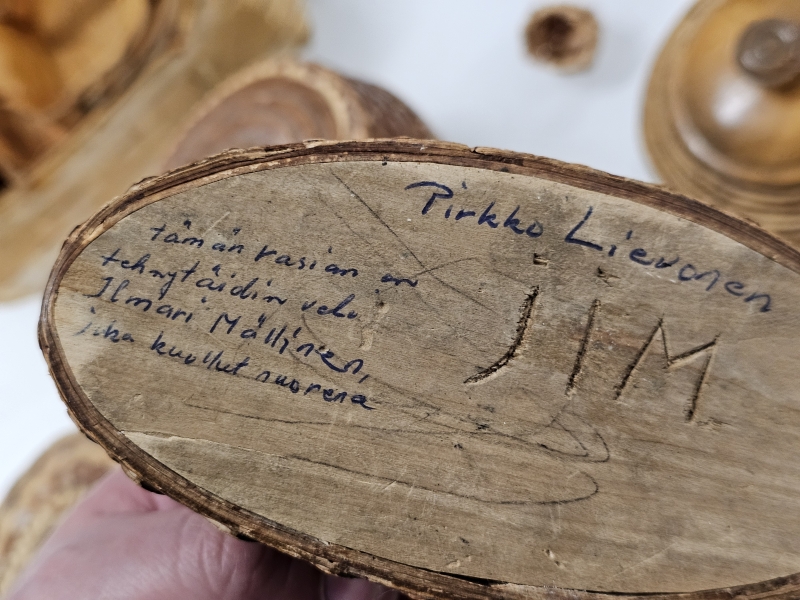 Pirkko Lievonen
tämän rasian on
tehnyt äidin velj
Ilmari Mällinen,
joka kuollut nuorena
JIM